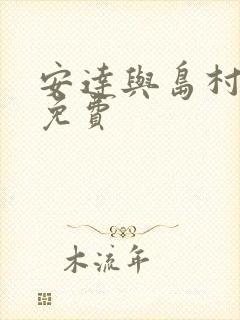 安達與島村
免費
木流年